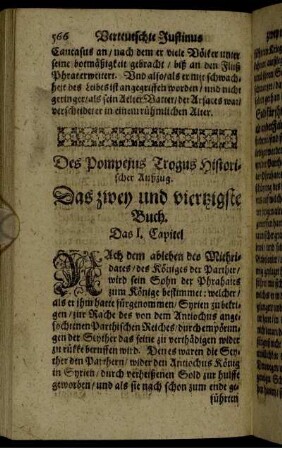 566 Verteutschte Justinus
Caucasus an/ nach dem er viele Völcker unter
seine botmäßigkeit gebracht/ biß an den Fluß
Phrat erweitert. Und also/ als er mit schwach-
heit des Leibes ist angegriffen worden/ und nicht
geringer/ als sein Aelter Vatter/ der Arsaces war/
verscheidet er in einem rühmlichen Alter.
Des Pompejus Trogus Histori-
scher Außzug.
Das zwey und viertzigste
Buch.
Das I. Capitel
NAch dem ableben des Mithri-
dates/ des Königes der Parther/
wird sein Sohn der Phrahats
zum Könige bestimmet: welcher/
als er ihm hatte fürgenommen/ Syrien zu bekri-
gen/ zur Rache des von dem Antiochus ange-
fochtenen Parthischen Reiches/ durch empörun-
gen der Scyther das seine zu verthädigen wider
zu rükke beruffen wird. Den es waren die Scy-
ther den Parthern/ wider den Antiochus König
in Syrien/ durch verheissenen Sold zur hülffe
geworben/ und als sie nach schon zum ende ge-
führten